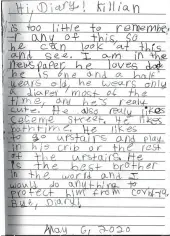 Hi, Diary! Killian
is too little to remember
any of this so
he can look at this
and see. I am in the
newspaper he loves dad
he is one and a half
years old, he wears only
a diaper most of the
time, and he's really
cute. He also really likes
Seseme Street. He likes
bathtime. He likes
to go upstairs and play
in his crib or the rest
of the upstairs. He
is the best brother
in the world and I
would do anything to
protect him from Covid-19.
But, Diary!
May 6, 2020